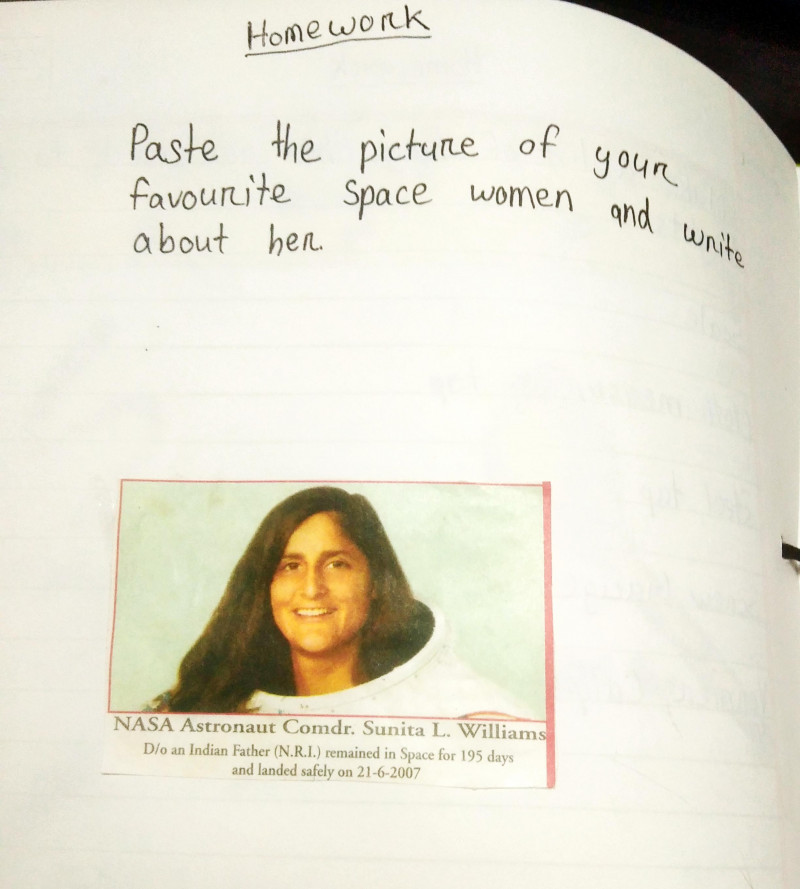 Homework
Paste the picture of your
favourite Space women and write
about her.
NASA Astronaut Comdr. Sunita L. Williams
D/o an Indian Father (N.R.I.) remained in Space for 195 days
and landed safely on 21-6-2007